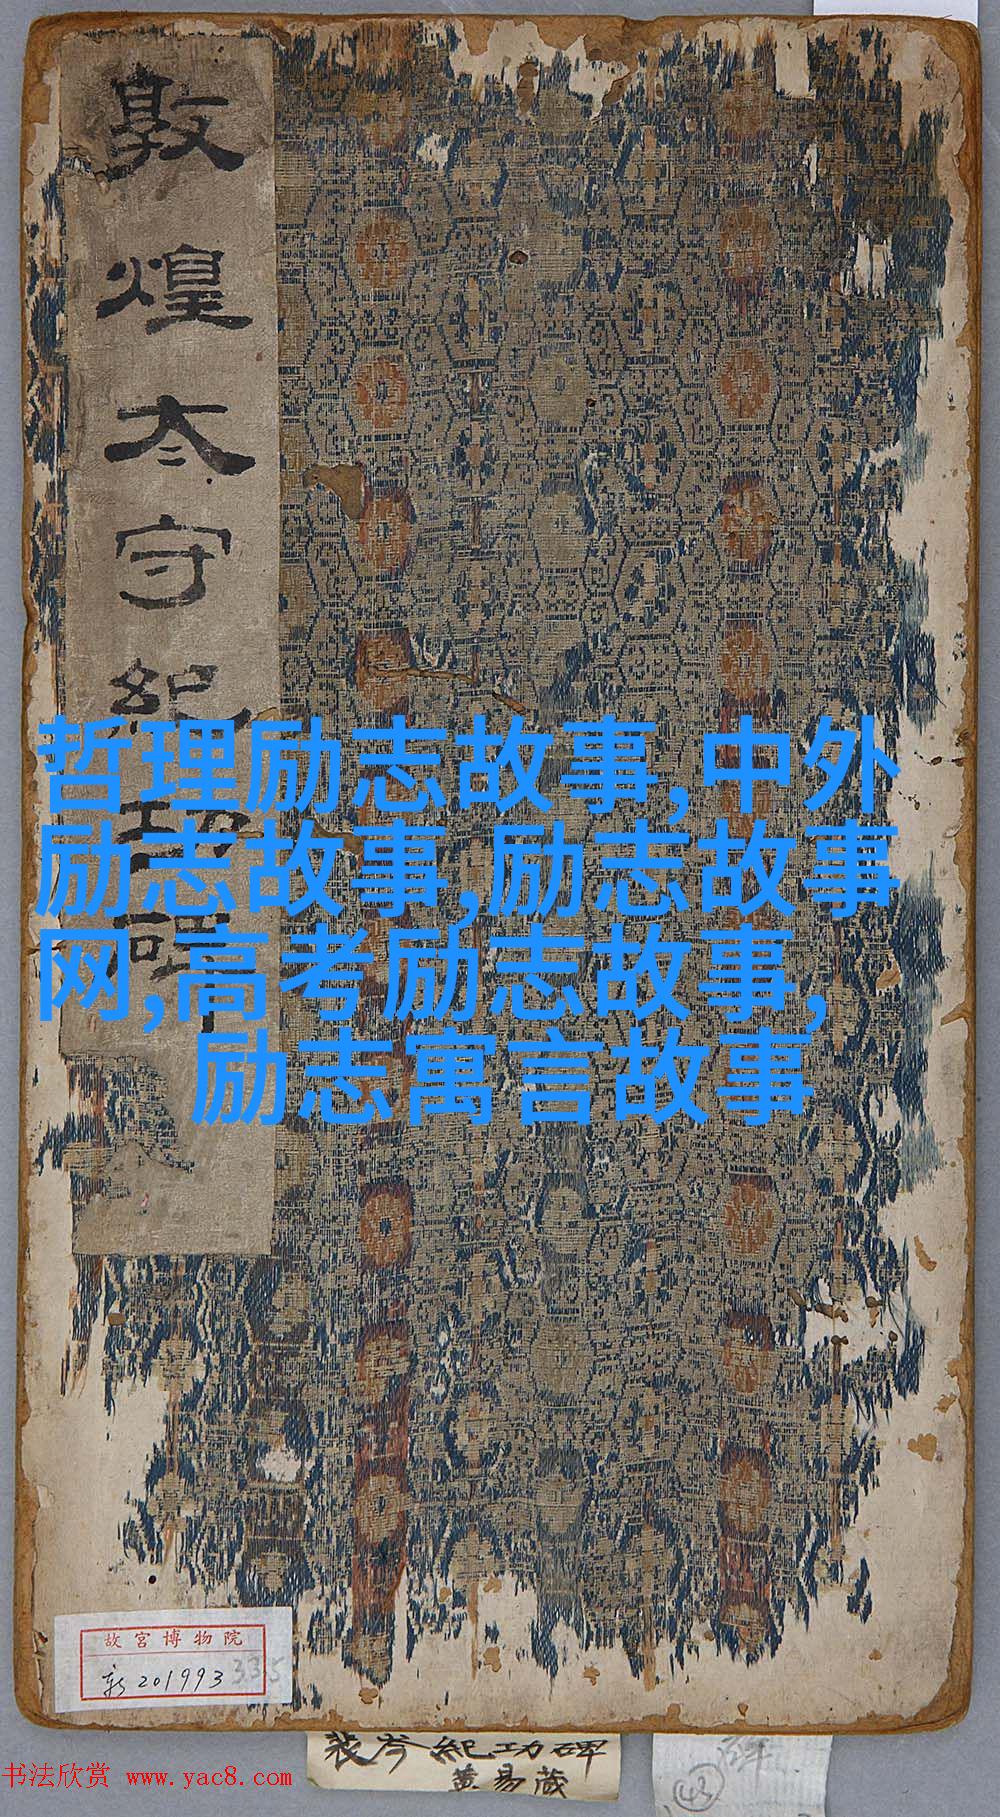 敦煌太守紀功碑
哲理励志故事,中外
励志故事,励志故事
网,高考励志故事,
励志寓言故事
故宫博物院
新201993
335
裴岑紀功碑
黄易藏
43
书法欣赏 www.yac8.com